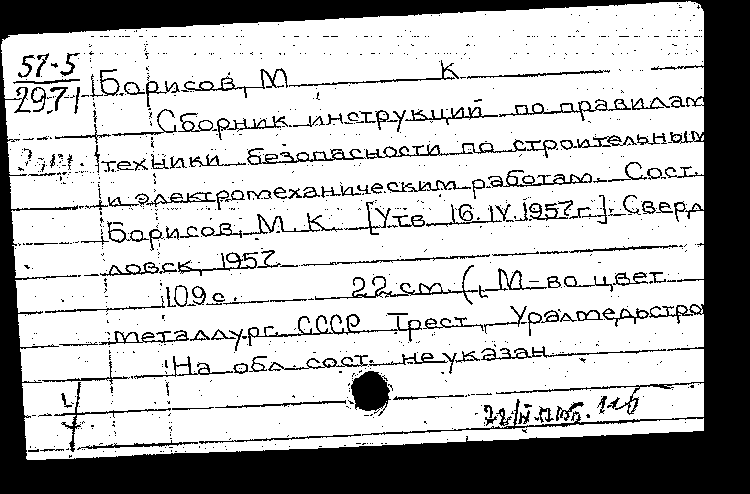 57-5
2971
Борисов, М К
Сборник инструкций по правилам
техники безопасности по строительным
и электромеханическим работам. Сост.
Борисов, М. К. [Утв. 16.IV.1957г.]. Сверд
ловск, 1957.
109 с. 22 см. (М-во цвет.
металлург. СССР Трест "Уралмедьстро
На обл. сост. не указан